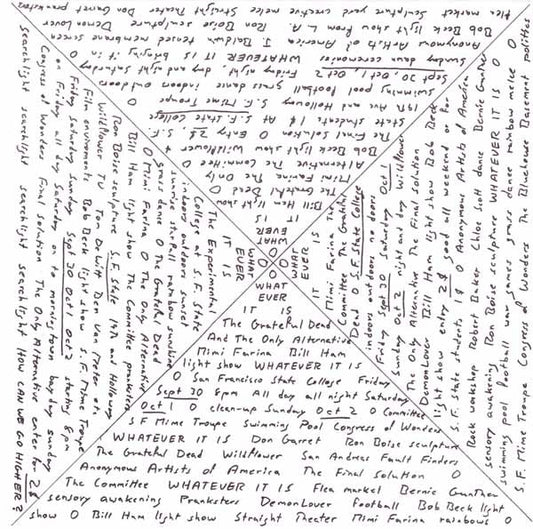 WHAT
EVER
IT IS
The Grateful Dead
And The Only Alternative
Mimi Farina Bill Ham
light show WHATEVER IT IS
O San Francisco State College Friday
Sept 30 8PM All day all night Saturday
Oct 1 O clean-up Sunday Oct 2 O Committee
S F Mime Troupe Swimming Pool Congress of Wonders
WHATEVER IT IS Don Garret Ron Boise sculpture
The Grateful Dead Wildflower San Andreas Fault Finders
Anonymous Artists of America The Final Solution O
The Committee WHATEVER IT IS Flea market Bernie Gunther
sensory awakening Pranksters DemonLover football Bob Beck light
show O Bill Ham light show Straight Theater Mimi Farina rainbows O
WHAT
EVER
IT IS
The Experimental
College at S.F. State
indoors outdoors sunset
sunrise starfall rainbow sunshine
grass dance O The Grateful Dead
O Mimi Farina O The Only Alternative
O Bill Ham light show The Committee pranksters
Ron Boise sculpture S.F. State 19th and Holloway
Wildflower TV Ton DeWitt Don Van Meter etc
Film enviroments Bob Beck light show S.F. Mime Troupe
Friday Saturday Sunday Sept 30 Oct 1 Oct 2 starts 8pm
on Friday all day Saturday on to morningstown bay day sunday
Congress of Wonders Final Solution The Only Alternative enter for 2$
searchlight searchlight searchlight searchlight HOW CAN WE GO HIGHER?
WHAT
EVER
IT IS
Bill Ham light show
The Grateful Dead O
Mimi Farina The Only
Alternative The Committee O
Bob Beck light show Wildflower
The Final Solution O Entry 2$ S.F.
State students 1$ At S.F. State College
19th Ave and Holloway S.F. Mime Troupe
swimming pool football grass dance indoors outdoors
Sept 30, Oct 1, Oct 2 Friday night day and night Saturday
Sunday dawn ceremonies WHATEVER IT IS bringing it in O
Anonymous Artists of America J. Baldwin tensed membrane screen
Bob Beck light show from L.A. Ron Boise sculpture Demon Lover
flea market sculpture yard creative melee Straight Theater Don Garret pranksters
WHAT
EVER
IT IS
Mimi Farina The
Committee The Grateful
Dead O S.F. State College
indoors outdoors no doors
Friday Sept 30 Saturday Oct 1
Sunday Oct 2 night and day Wildflower
The Only Alternative The Final Solution
DemonLover Bill Ham light show Bob Beck
light show entry 2$ good all weekend or for
S.F. State students 1$ O Anonymous Artists of America
Rock workshop Robert Baker Chloe Scott dance Bernie Gunther
sensory awakening Ron Boise sculpture WHATEVER IT IS O
swimming pool football war games grass dance rainbow melee O
S.F. Mime Troupe Congress of Wonders The Bluehouse Basement politics